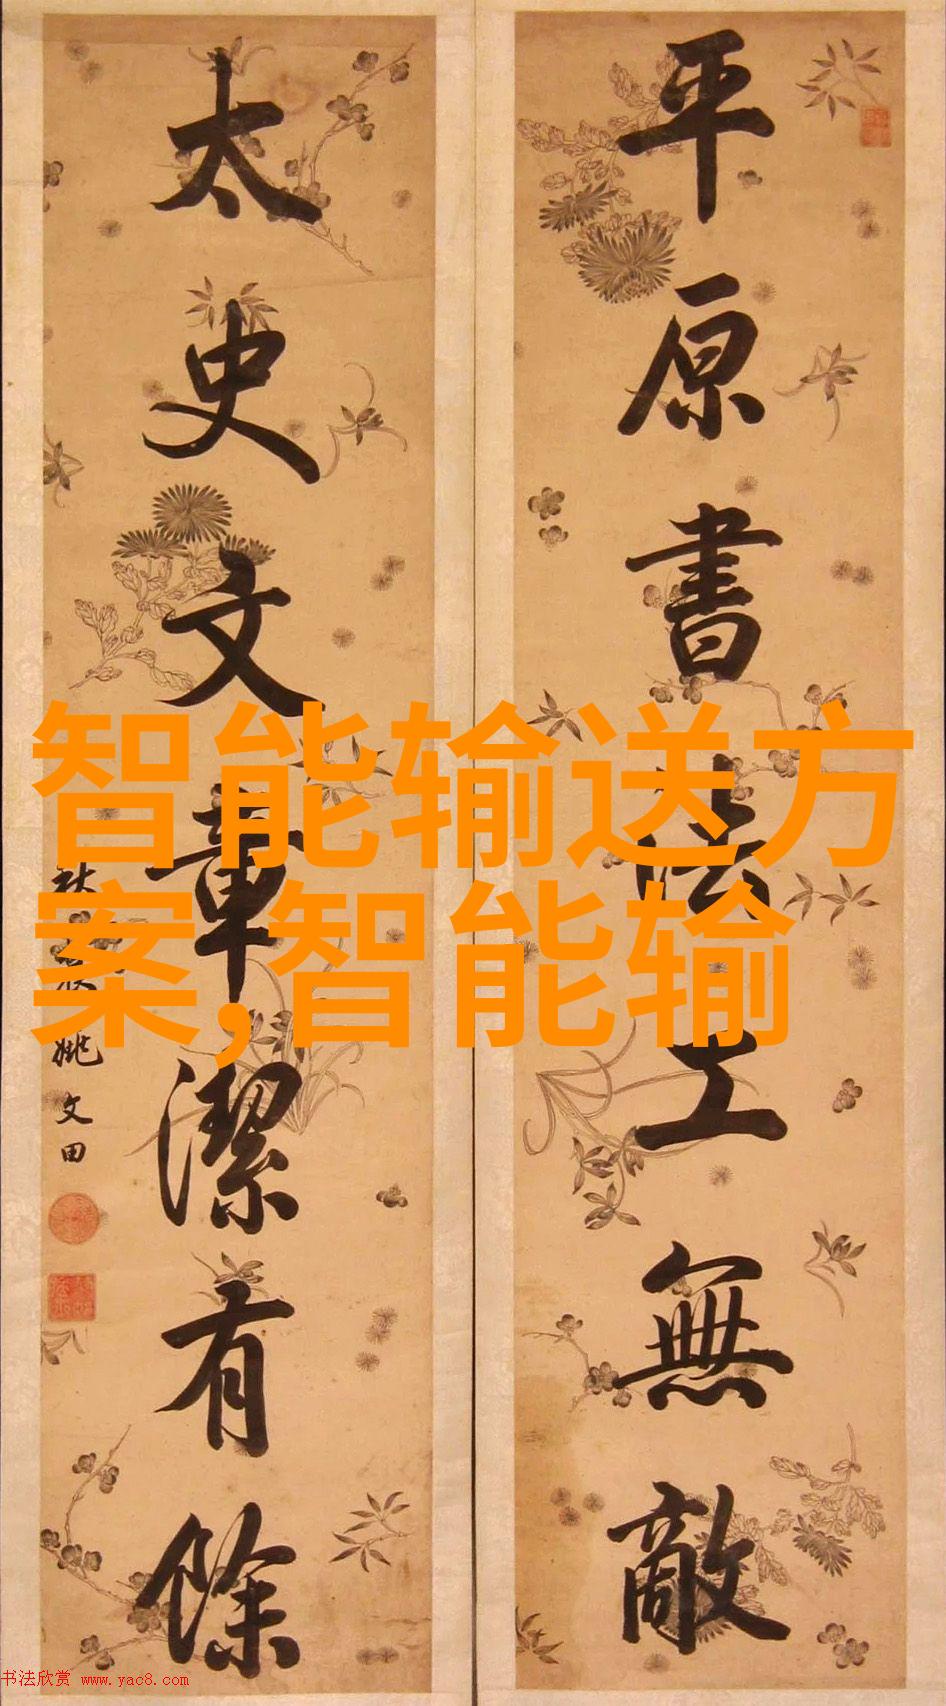 平原書法工無敵
太史文章潔有餘
姚文田
智能输送方
案,智能输
书法欣赏 www.yac8.com